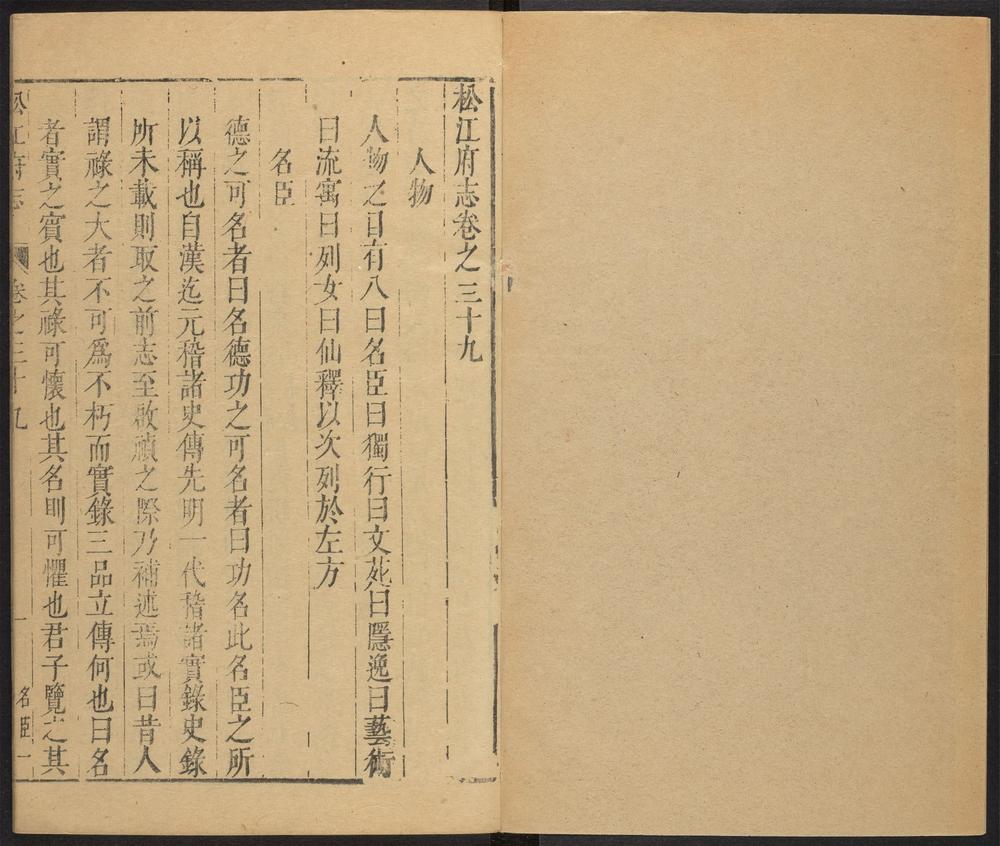 松江府志卷之三十九
人物
人物之目有八曰名臣曰獨行曰文苑曰隱逸曰藝術
曰流寓曰列女曰仙釋以次列於左方
名臣
德之可名者曰名德功之可名者曰功名此名臣之所
以稱也自漢迄元稽諸史傳先明一代稽諸實錄史錄
所未載則取之前志至啟禎之際乃補述焉或曰昔人
謂祿之大者不可爲不朽而實錄三品立傳何也曰名
者實之賓也其祿可懷也其名則可懼也君子覽之其
松江府志 卷之三十九 名臣 一